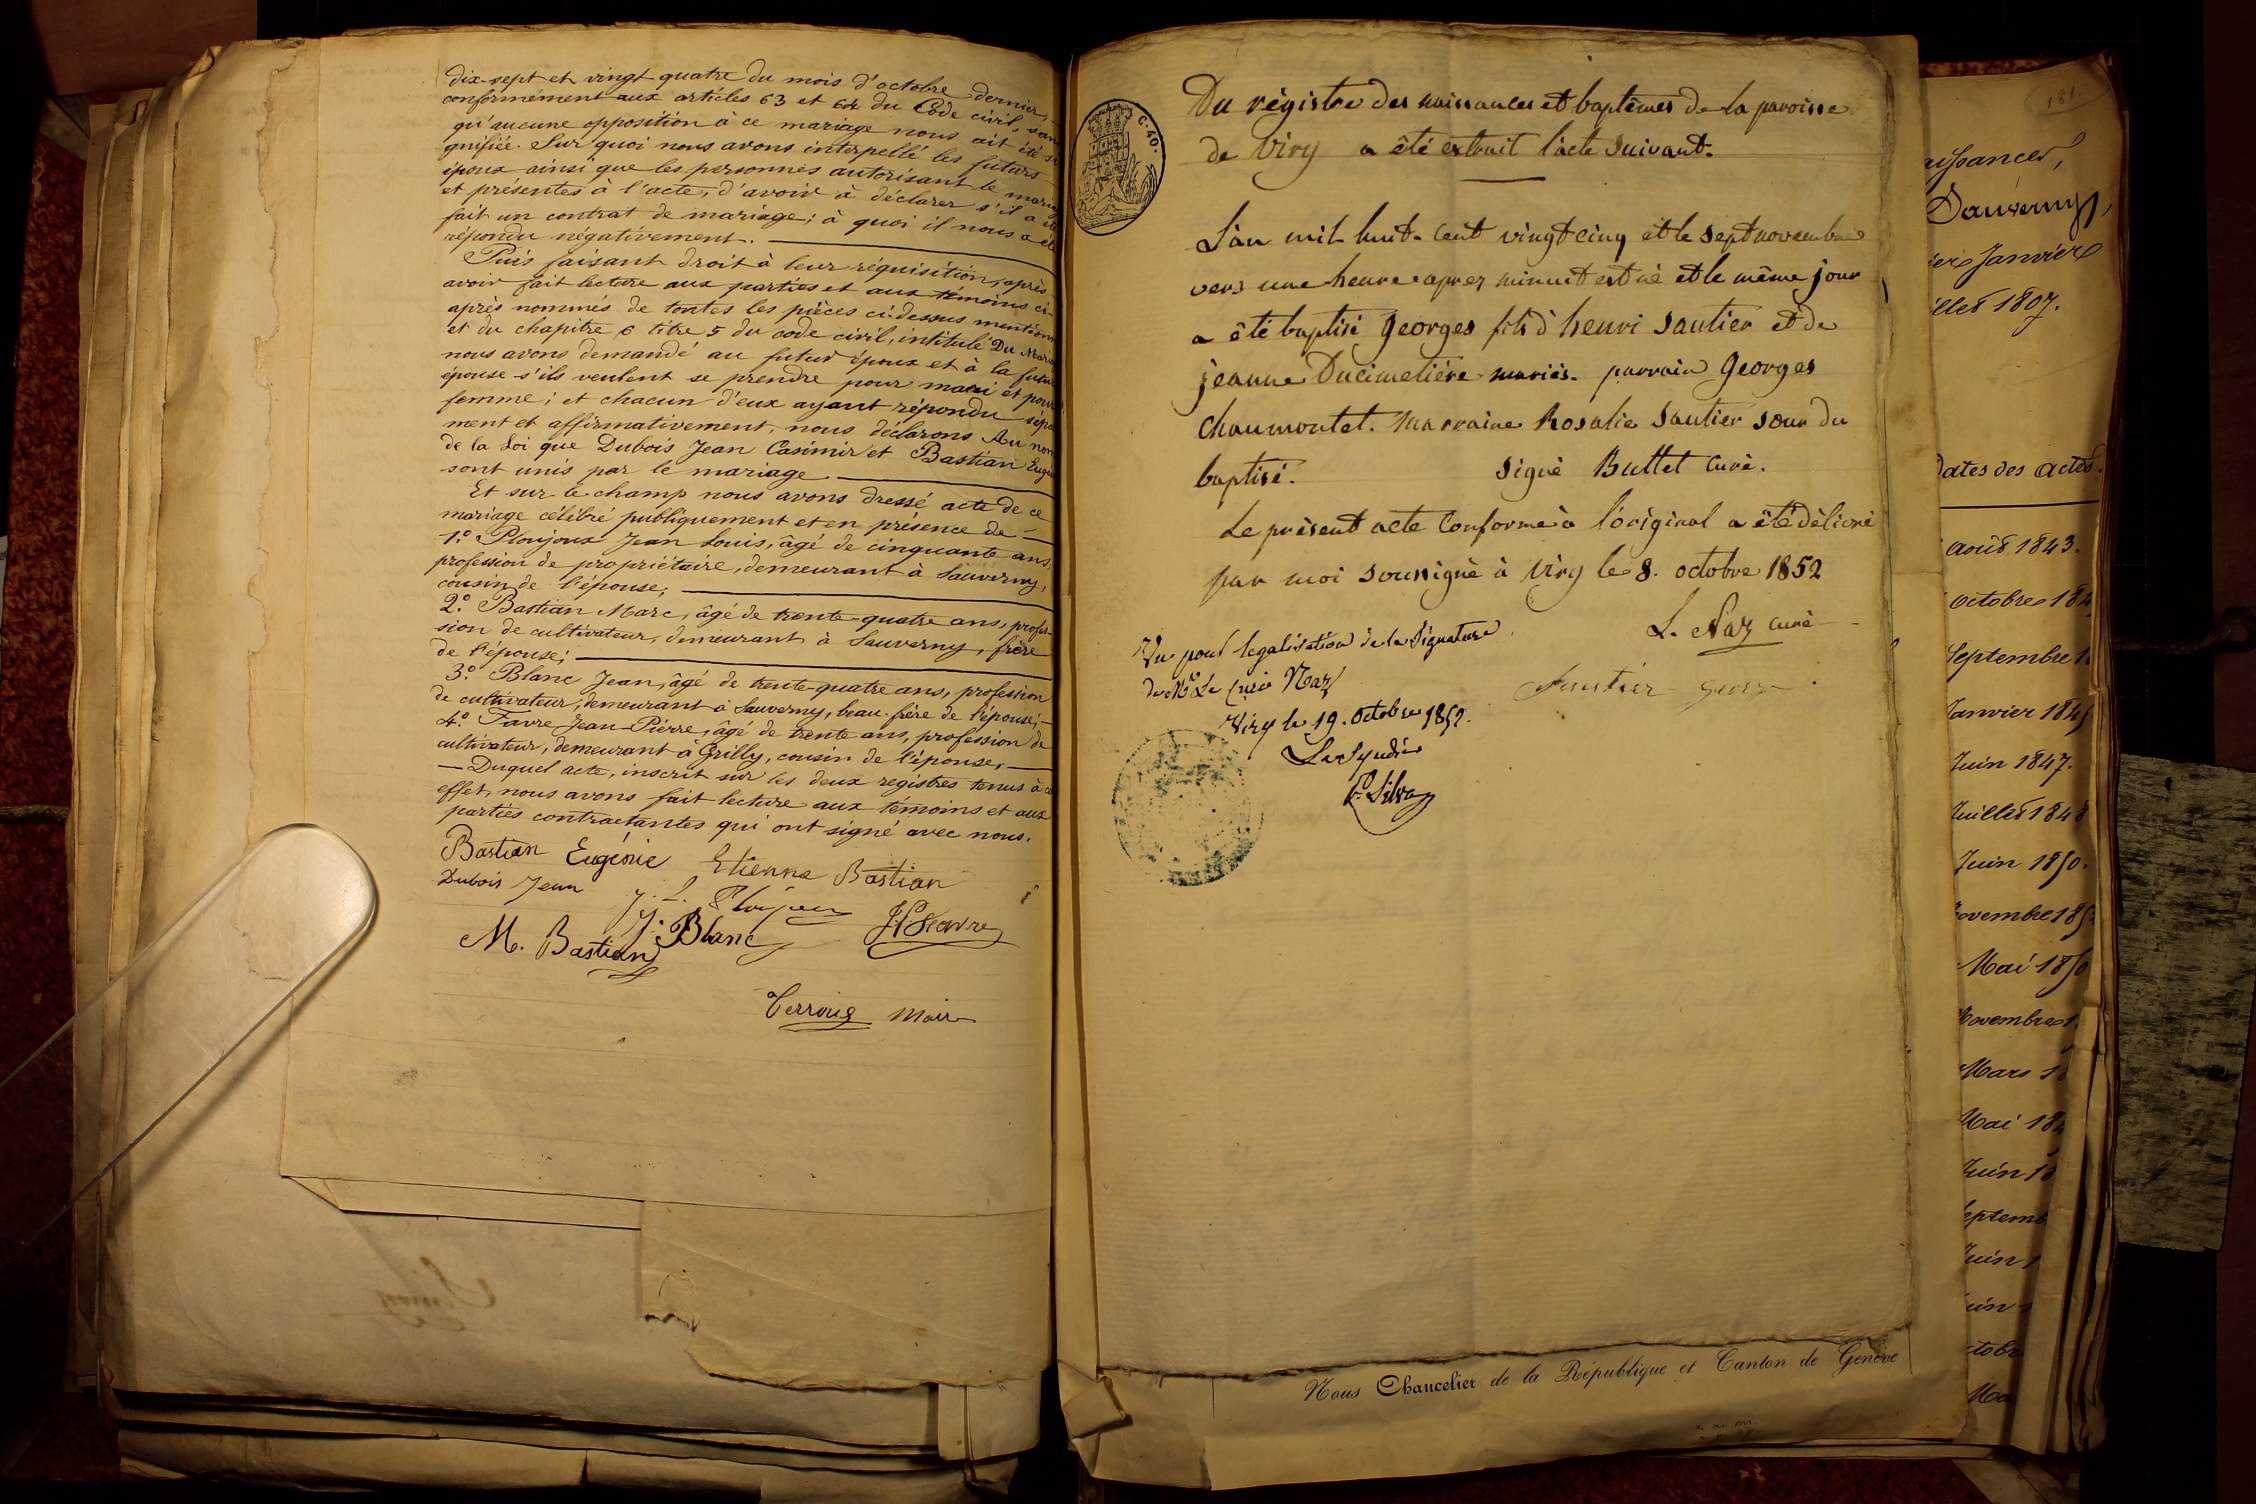 dix-sept et vingt quatre du mois d'octobre dernier,
conformément aux articles 63 et 64 du Code civil, san
qu'aucune opposition à ce mariage nous ait été si
gnifiée. Sur quoi nous avons interpellé les futurs
époux ainsi que les personnes autorisant le maria
et présentes à l'acte, d'avoir à déclarer s'il a été
fait un contrat de mariage; à quoi il nous a été
répondu négativement.
Puis faisant droit à leur réquisition, après
avoir fait lecture aux parties et aux témoins ci-
après nommés de toutes les pièces ci-dessus mention
et du chapitre 6 titre 5 du code civil, intitulé Du Maria
nous avons demandé au futur époux et à la futur
épouse s'ils veulent se prendre pour mari et pour
femme; et chacun d'eux ayant répondu sépa
ment et affirmativement, nous déclarons Au nom
de la Loi que Dubois Jean Casimir et Bastian Eugén
sont unis par le mariage.
Et sur le champ nous avons dressé acte de ce
mariage célébré publiquement et en présence de
1.° Ploujoux Jean Louis, âgé de cinquante ans,
profession de propriétaire, demeurant à Sauverny,
cousin de l'épouse;
2.° Bastian Marc, âgé de trente-quatre ans, profes-
sion de cultivateur, demeurant à Sauverny, frère
de l'épouse;
3.° Blanc Jean, âgé de trente-quatre ans, profession
de cultivateur, demeurant à Sauverny, beau-frère de l'épouse;
4.° Favre Jean-Pierre, âgé de trente ans, profession de
cultivateur, demeurant à Grilly, cousin de l'épouse,
Duquel acte, inscrit sur les deux registres tenus à ce
effet, nous avons fait lecture aux témoins et aux
parties contractantes qui ont signé avec nous.
Bastian Eugénie Etienne Bastian
Dubois Jean J. L. Ploujoux
M. Bastian J. Blanc JPFavre
Terroug Maire
C. 40.
Du régistre des naissances et baptêmes de la paroisse
de Viry a été extrait l'acte suivant.
L'an mil huit-cent vingt cinq et le sept novembre
vers une heure aprez minuit est né et le même jour
a été baptisé georges fils d'henri Sautier et de
jeanne Ducimetière mariés. parrain georges
Chaumontet. Marraine Rosalie Sautier sœur du
baptisé. signé Buttet Curé.
Le présent acte Conforme à l'original a été délivré
par moi soussigné à Viry le 8. octobre 1852
L. Naz curé
Vu pour legalisation de la Signature
de Mr Le Curé Naz
Viry le 19. Octobre 1852.
Le Syndic
Sautier
Nous Chancelier de la République et Canton de Genève
181.
aissances,
Sauverny,
ier Janvier
illet 1807.
Dates des actes.
août 1843.
octobre 184
Septembre 1
Janvier 1845
Juin 1847.
Juillet 1848
Juin 1850.
Novembre 185
Mai 1850
Novembre 1
Mars 18
Mai 184
Juin 18
Septemb
Juin 1
uin
ctobr
Ma